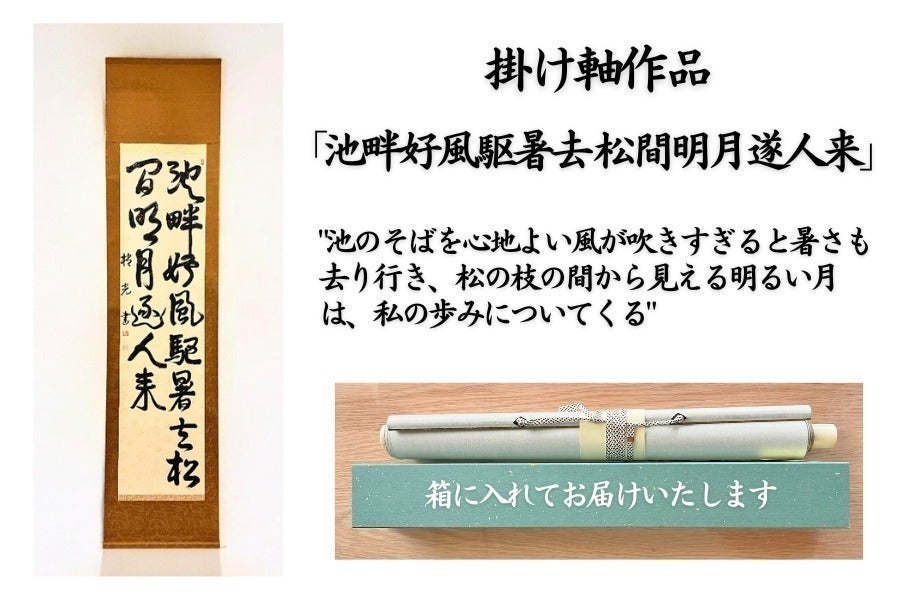 池畔好風駆暑去松
間明月逐人来
光書
掛け軸作品
「池畔好風駆暑去松間明月遂人来」
"池のそばを心地よい風が吹きすぎると暑さも
去り行き、松の枝の間から見える明るい月
は、私の歩みについてくる"
箱に入れてお届けいたします